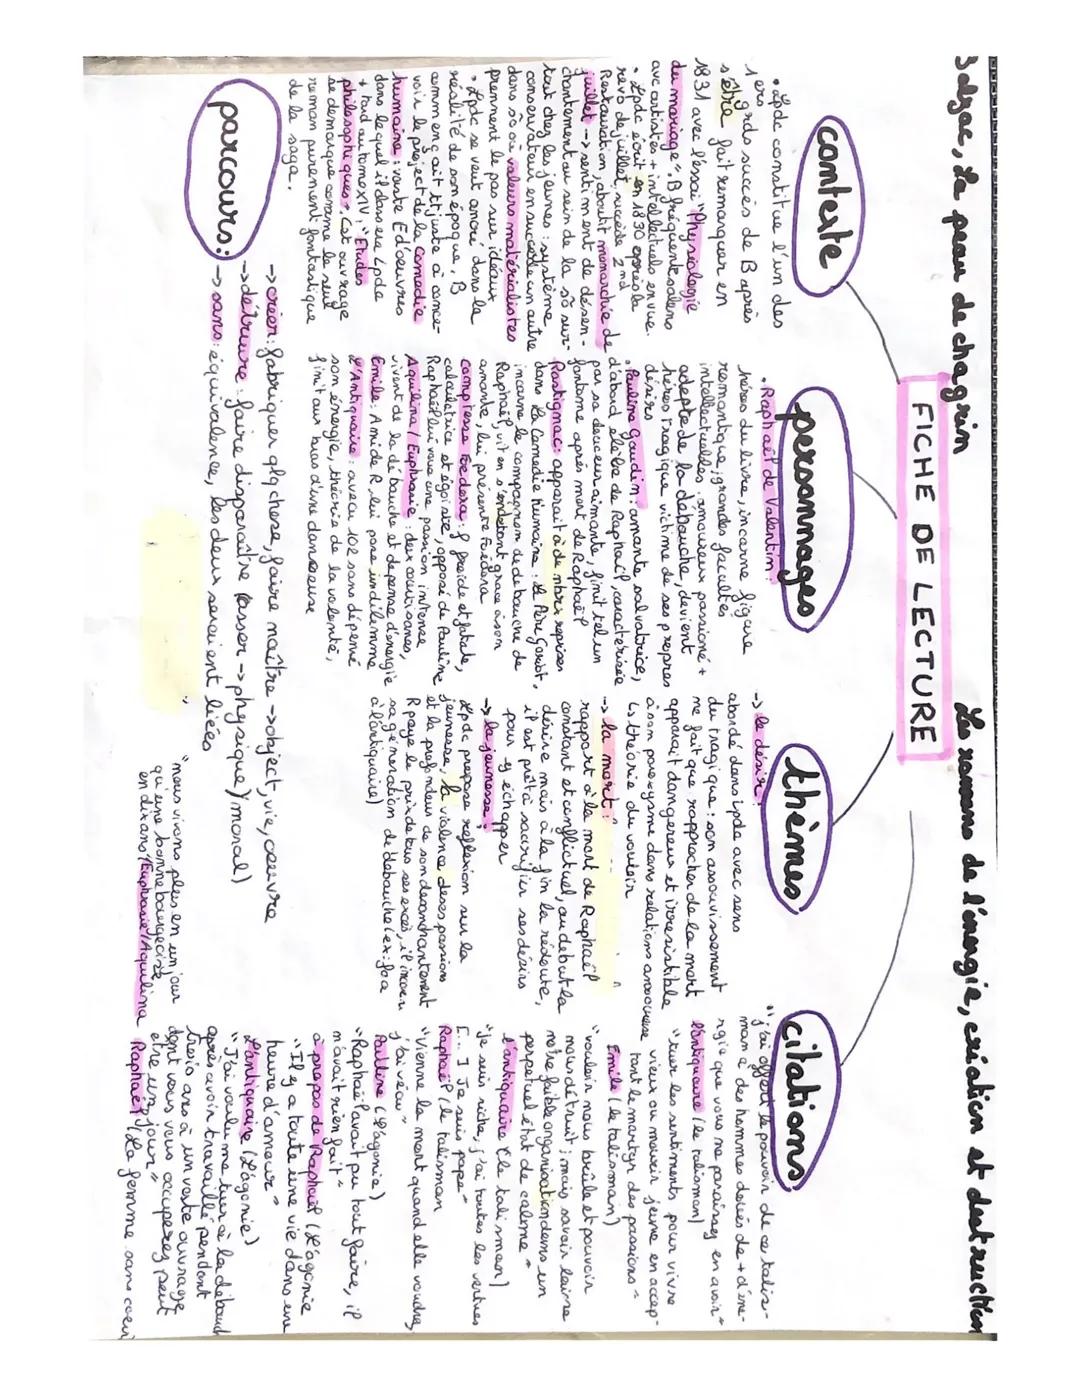 Balzac, La peau de chagrin
Les romans de l'énergie, création et destruction
FICHE DE LECTURE
contexte
• Lpdc constitue l'un des
1ers grds succès de B après
s'être fait remarquer en
1831 avec l'essai "Physiologie
du mariage". B fréquente salons
avc artistes + intellectuels en vue.
• Lpdc écrit en 1830 après la
révo de juillet, succède 2nd
Restauration, aboutit monarchie de
juillet → sentiment de désen-
chantement au sein de la sõ sur-
tout chez les jeunes : système
conservateur en succède un autre
dans sõ où valeurs matérialistes
prennent le pas sur idéaux
• Lpdc se veut ancré dans la
réalité de son époque, B
commençait tt juste à conce-
voir le project de la comédie
humaine : vente E d'oeuvres
dans lequel il dans era Lpdc
+ tard au tomoxIV, "Etudes
philosophiques". Cet ouvrage
se démarque comme le seul
roman purement fantastique
de la saga.
personnages
• Raphaël de Valentin :
héros du livre, incarne figure
romantique, grandes facultés
intellectuelles, amoureux passioné +
adepte de la débauche, devient
héros tragique victime de ses propres
désirs
• Pauline Gaudin : amante salvatrice,
d'abord élève de Raphaël, caractérisée
par sa douceur aimante, finit tel un
fantome après mort de Raphaël
Rastignac : apparaît à de nbres reprises
dans la Comédie Humaine : le Père Goriot,
incarne le compagnon de débauche de
Raphaël, vit en s'endettant grace à son
amante, lui présente Foedora
comptesse Foedora : froide et fatale,
calculatrice et égoïste, opposé de Pauline
Raphaël lui voue une passion intense
Aquilina / Euphrasie : deux courtisanes,
vivent de la débauche et dépense d'énergie
Emile : Ami de R, lui pose un dilemme
L'Antiquaire : a vécu 102 sans dépensé
son énergie, théorie de la volonté,
finit aux bras d'une danseuse
thèmes
→ le désir :
abordé dans lpdc avec sens
du tragique : son assouvissement
ne fait que rapprocher de la mort
apparait dangereux et irresistible
à son paroxysme dans relations amoureuse
↳ théorie du vouloir
→ la mort :
rapport à la mort de Raphaël
constant et conflictuel, au debut la
désire mais à la fin la redoute,
il est prêt à sacrifier ses désirs
pour y échapper
→ la jeunesse :
Lpdc propose reflexion sur la
jeunesse, la violence de ses passions
et la profondeur de son desenchantement
R paye le prix de tous ses excès, il incarne
sa génération de debauche (ex: foa
à l'Antiquaire)
citations
"j'ai offert le pouvoir de ce talis-
man à des hommes doués de + d'éne-
rgie que vous ne paraissez en avoir"
L'Antiquaire (le talisman)
"tuer les sentiments pour vivre
vieux ou mourir jeune en accep-
tant le martyr des passions"
Emile (le talisman)
"vouloir nous brûle et pouvoir
nous détruit ; mais savoir laisse
notre faible organisation dans un
perpetuel état de calme"
L'antiquaire (le talisman)
"Je suis riche, j'ai toutes les vertues
[...] Je suis pape"
Raphaël (le talisman
"Vienne la mort quand elle voudra,
j'ai vécu"
Pauline (L'agonie)
"Raphaël avait pu tout faire, il
n'avait rien fait"
à propos de Raphaël (L'agonie
"Il y a toute une vie dans une
heure d'amour"
L'antiquaire (L'agonie)
"J'ai voulu me tuer à la débauch
après avoir travaillé pendant
trois ans à un vaste ouvrage
dont vous vous occuperez peut
etre un jour"
Raphaël (La femme sans coeur
"nous vivons plus en un jour
qu'une bonne bourgeoisie
en dix ans" Euphrasie/Aquilina
parcours :
→ créer : fabriquer qlq chose, faire naître → object, vie, oeuvre
→ détruire : faire disparaître (casser → physique / moral)
→ sans : équivalence, les deux seraient liées